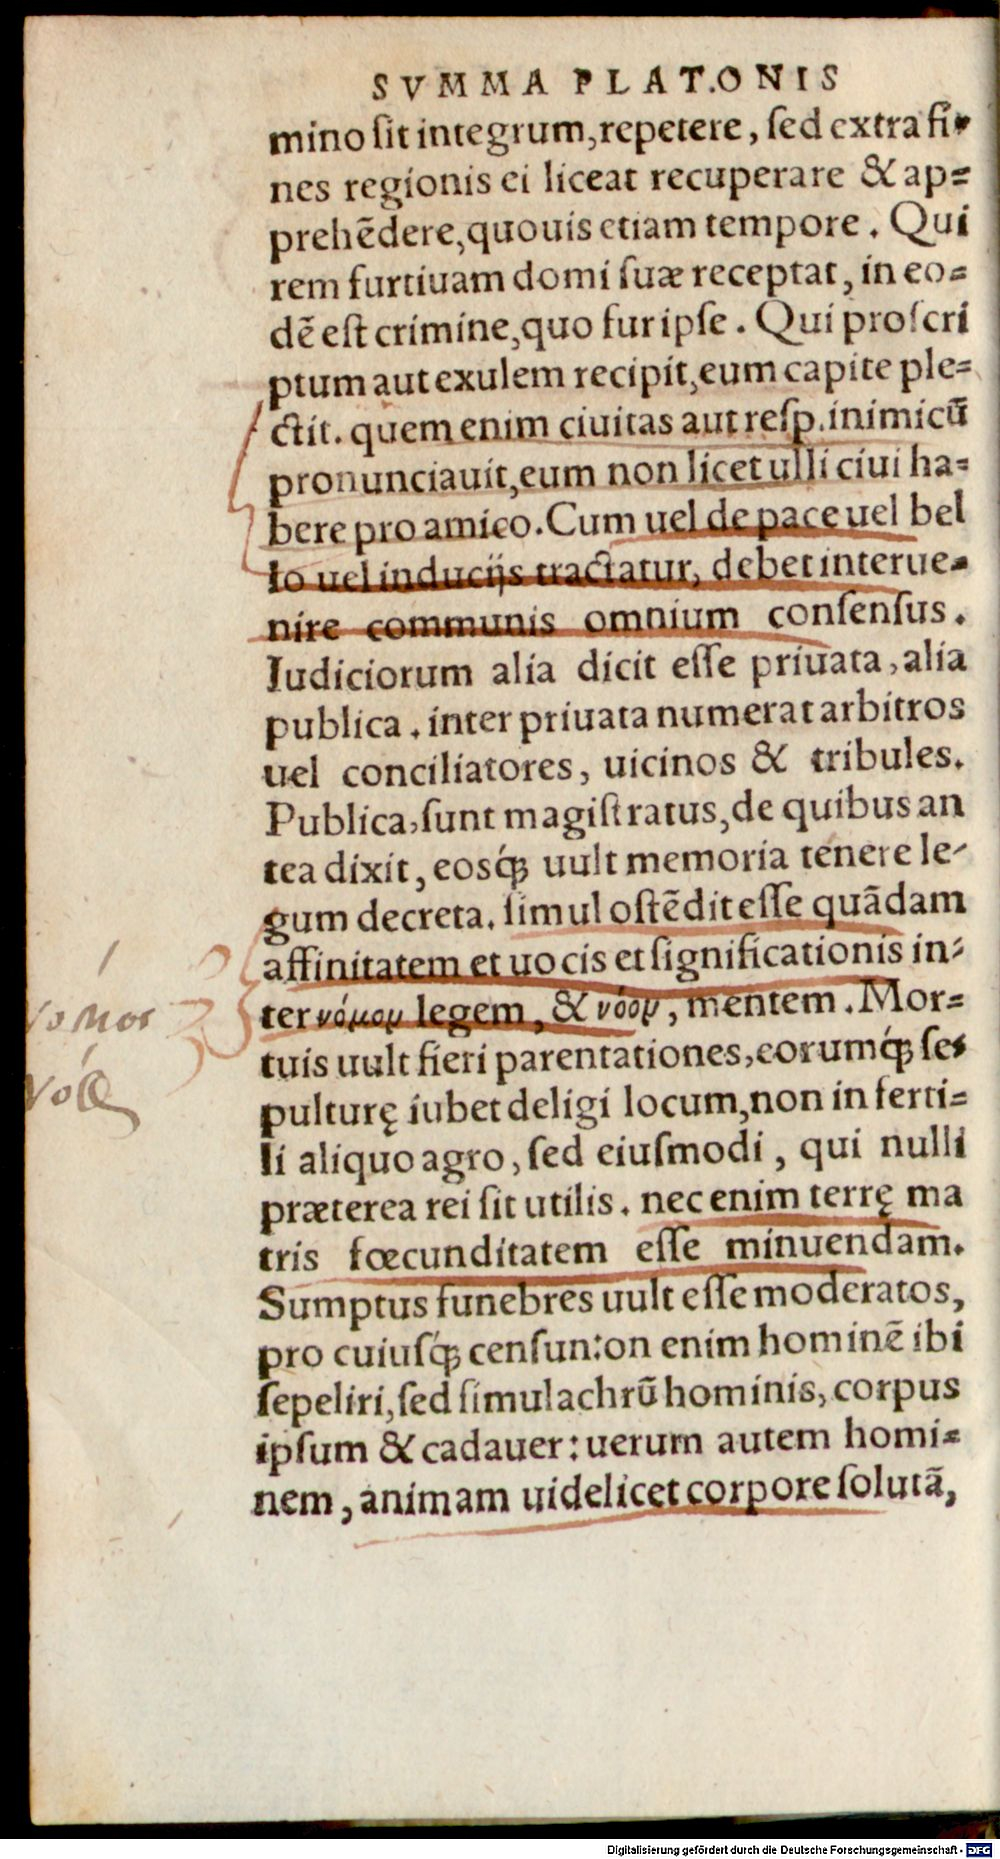 SVMMA PLATONIS
mino ſit integrum, repetere, ſed extra fi-
nes regionis ei liceat recuperare & ap=
prehēdere, quouis etiam tempore. Qui
rem furtiuam domi ſuæ receptat, in eo=
dē eſt crimine, quo fur ipſe. Qui proſcri
ptum aut exulem recipit, eum capite ple=
ctit. quem enim ciuitas aut reſp. inimicū
pronunciauit, eum non licet ulli ciui ha=
bere pro amico. Cum uel de pace uel bel
lo uel inducijs tractatur, debet interue=
nire communis omnium conſenſus.
Iudiciorum alia dicit eſſe priuata, alia
publica. inter priuata numerat arbitros
uel conciliatores, uicinos & tribules.
Publica, ſunt magiſtratus, de quibus an
tea dixit, eosq́; uult memoria tenere le-
gum decreta. ſimul oſtēdit eſſe quādam
affinitatem et uocis et ſignificationis in-
ter νόμομ legem, & νόομ, mentem. Mor=
νόμος
tuis uult fieri parentationes, eorumq́; ſe-
pulturę iubet deligi locum, non in ferti=
li aliquo agro, ſed eiuſmodi, qui nulli
præterea rei ſit utilis. nec enim terrę ma
tris fœcunditatem eſſe minuendam.
Sumptus funebres uult eſſe moderatos,
pro cuiuſq́; cenſu: on enim hominē ibi
ſepeliri, ſed ſimulachrū hominis, corpus
ipſum & cadauer: uerum autem homi=
nem, animam uidelicet corpore ſolutā,
Digitalisierung gefördert durch die Deutsche Forschungsgemeinschaft - DFG